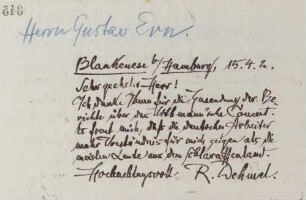 Herrn Gustav
Blankenese b/Hamburg, 15.4.
Sehr geehrter Herr!
Ich danke Ihnen für die Zusendung der Be-
richte über das Concert.
Es freut mich, daß die deutschen Arbeiter
mehr Verständnis für mich zeigen als die
meisten Leute aus dem Schlaraffenland.
Hochachtungsvoll R. Dehmel.